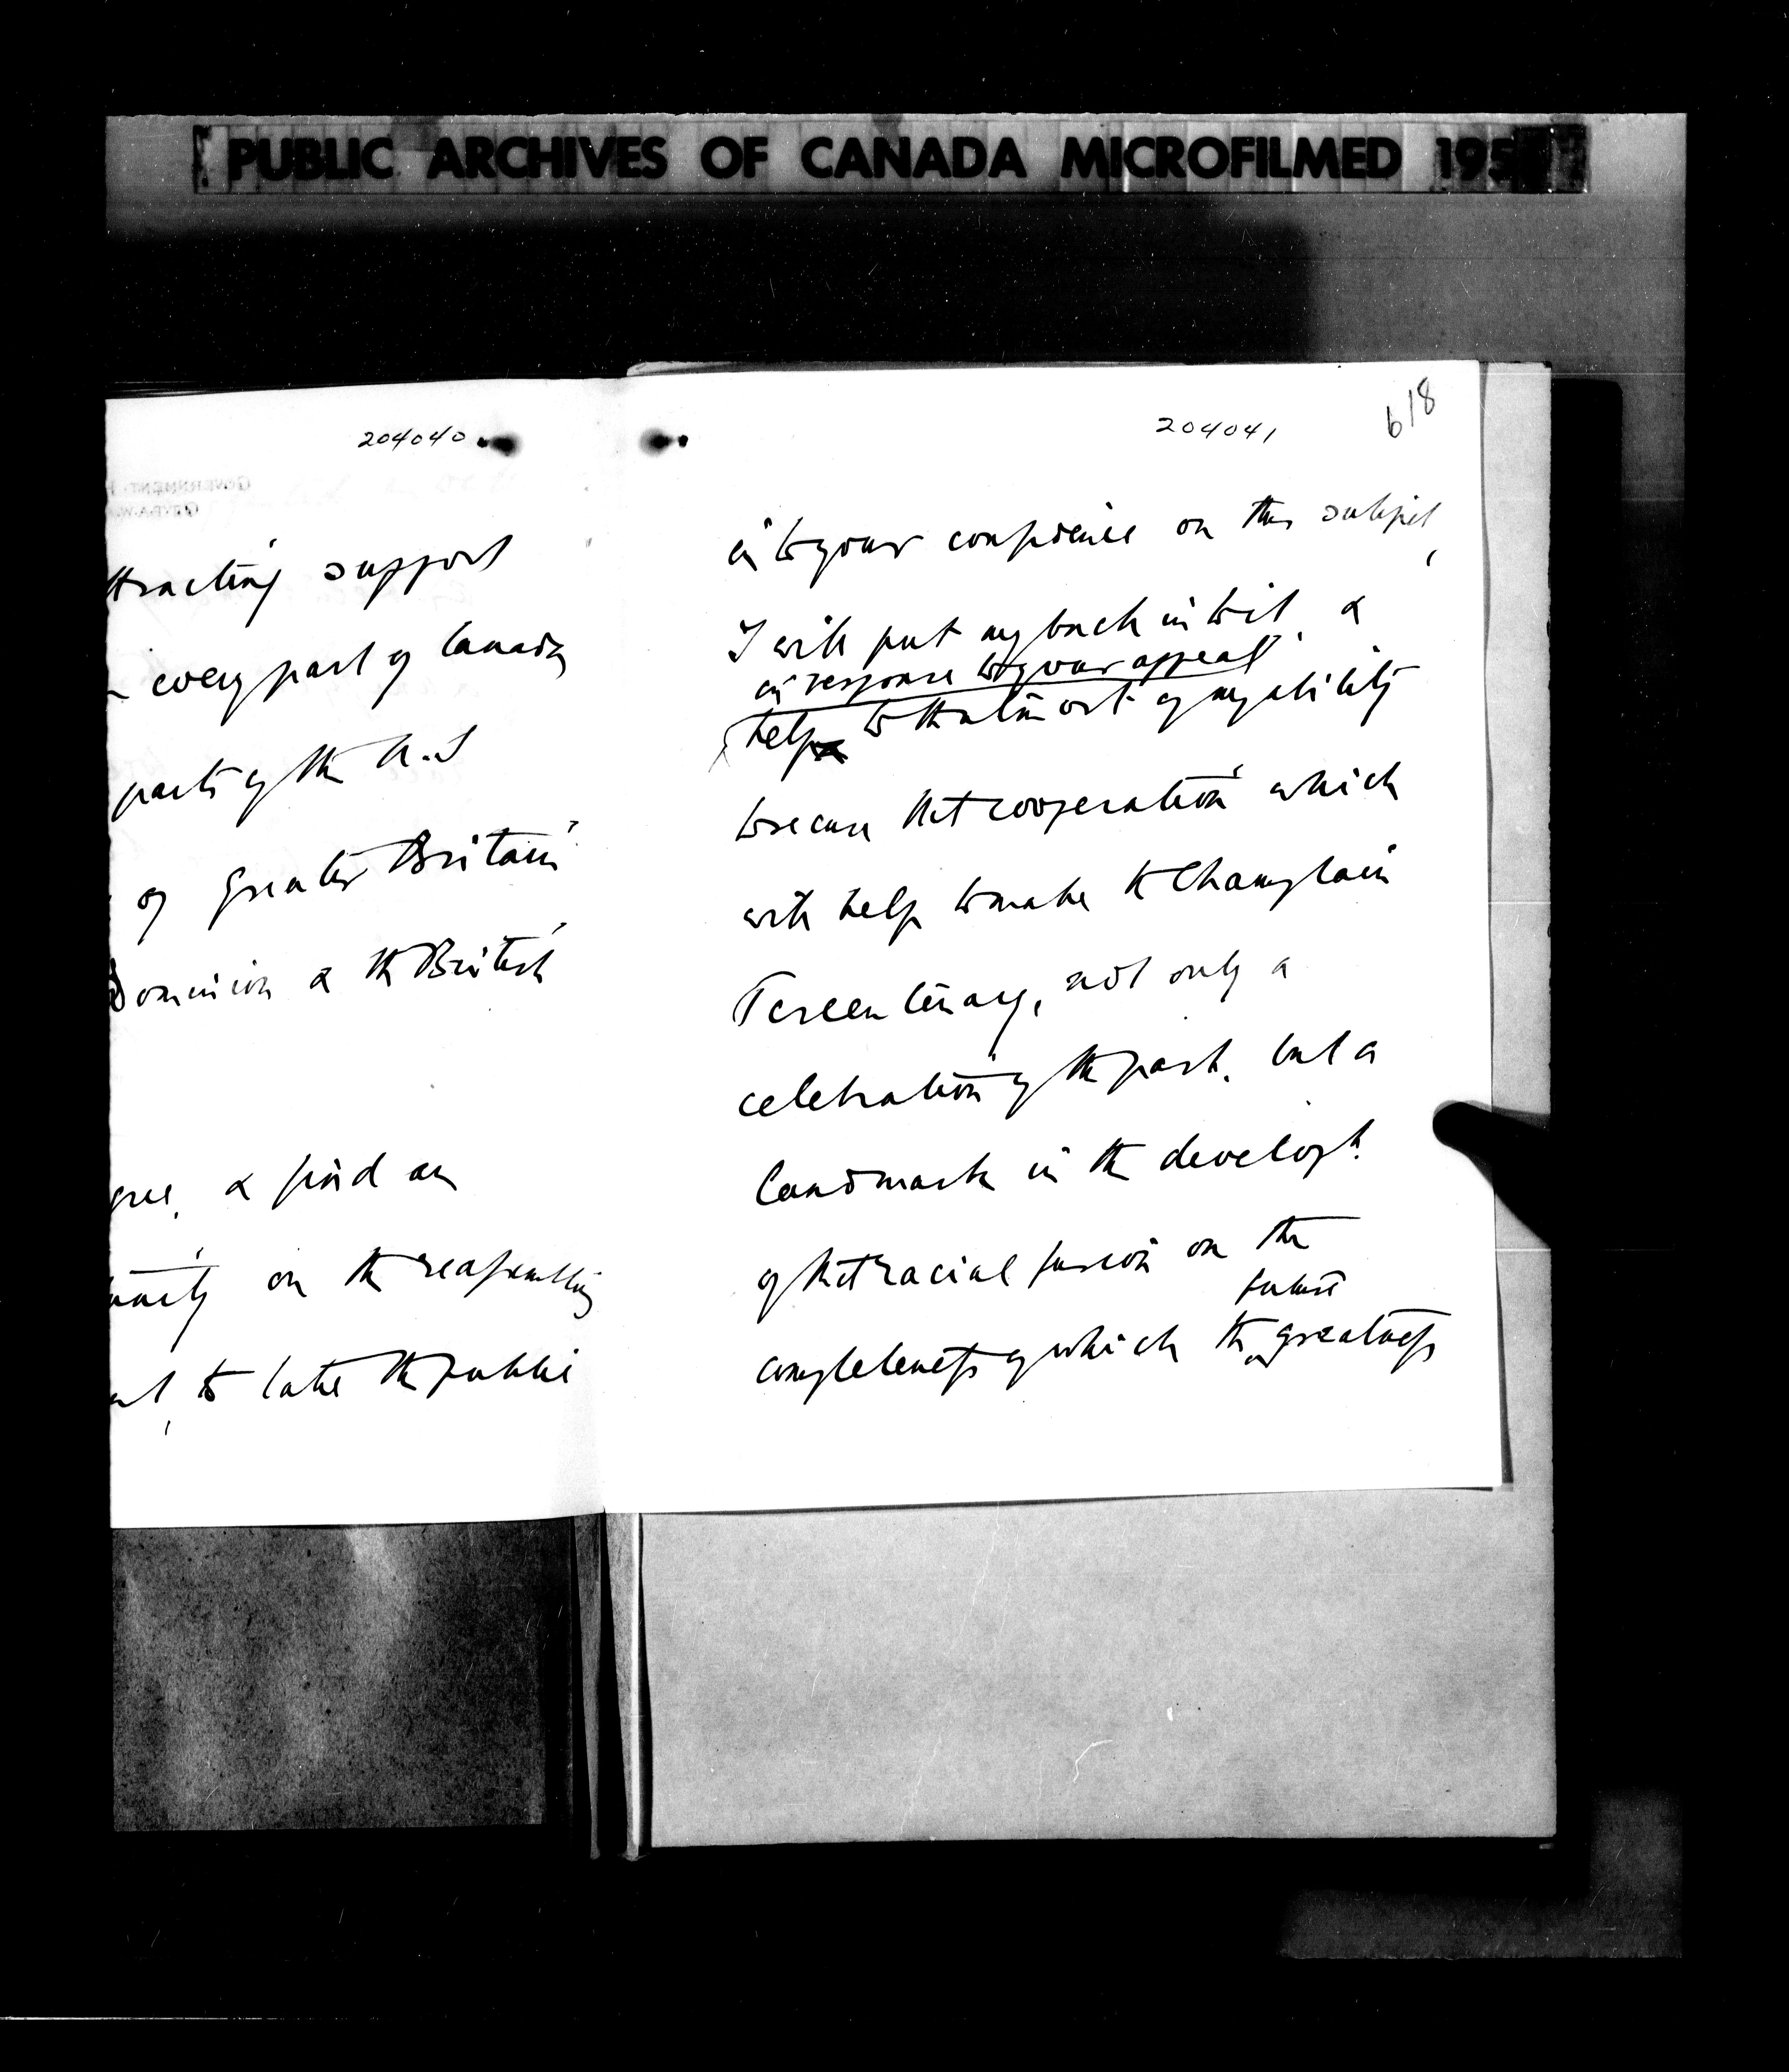 PUBLIC ARCHIVES OF CANADA MICROFILMED 195
204040
GOVERNMENT H
OTTAWA
ttracting support
every part of Canada
parts of the U.S
of Greater Britain
Dominion & the British
gree, & find an
on the reassembling
to take the public
204041
618
into your confidence on this subject,
I will put my back into it, &
in response to your appeal
help to the utmost of my ability
to secure that cooperation which
will help to make the Champlain
Tercentenary, not only a
celebration of the past, but a
landmark in the developt.
of that racial fusion on the
future
completeness of which the greatness